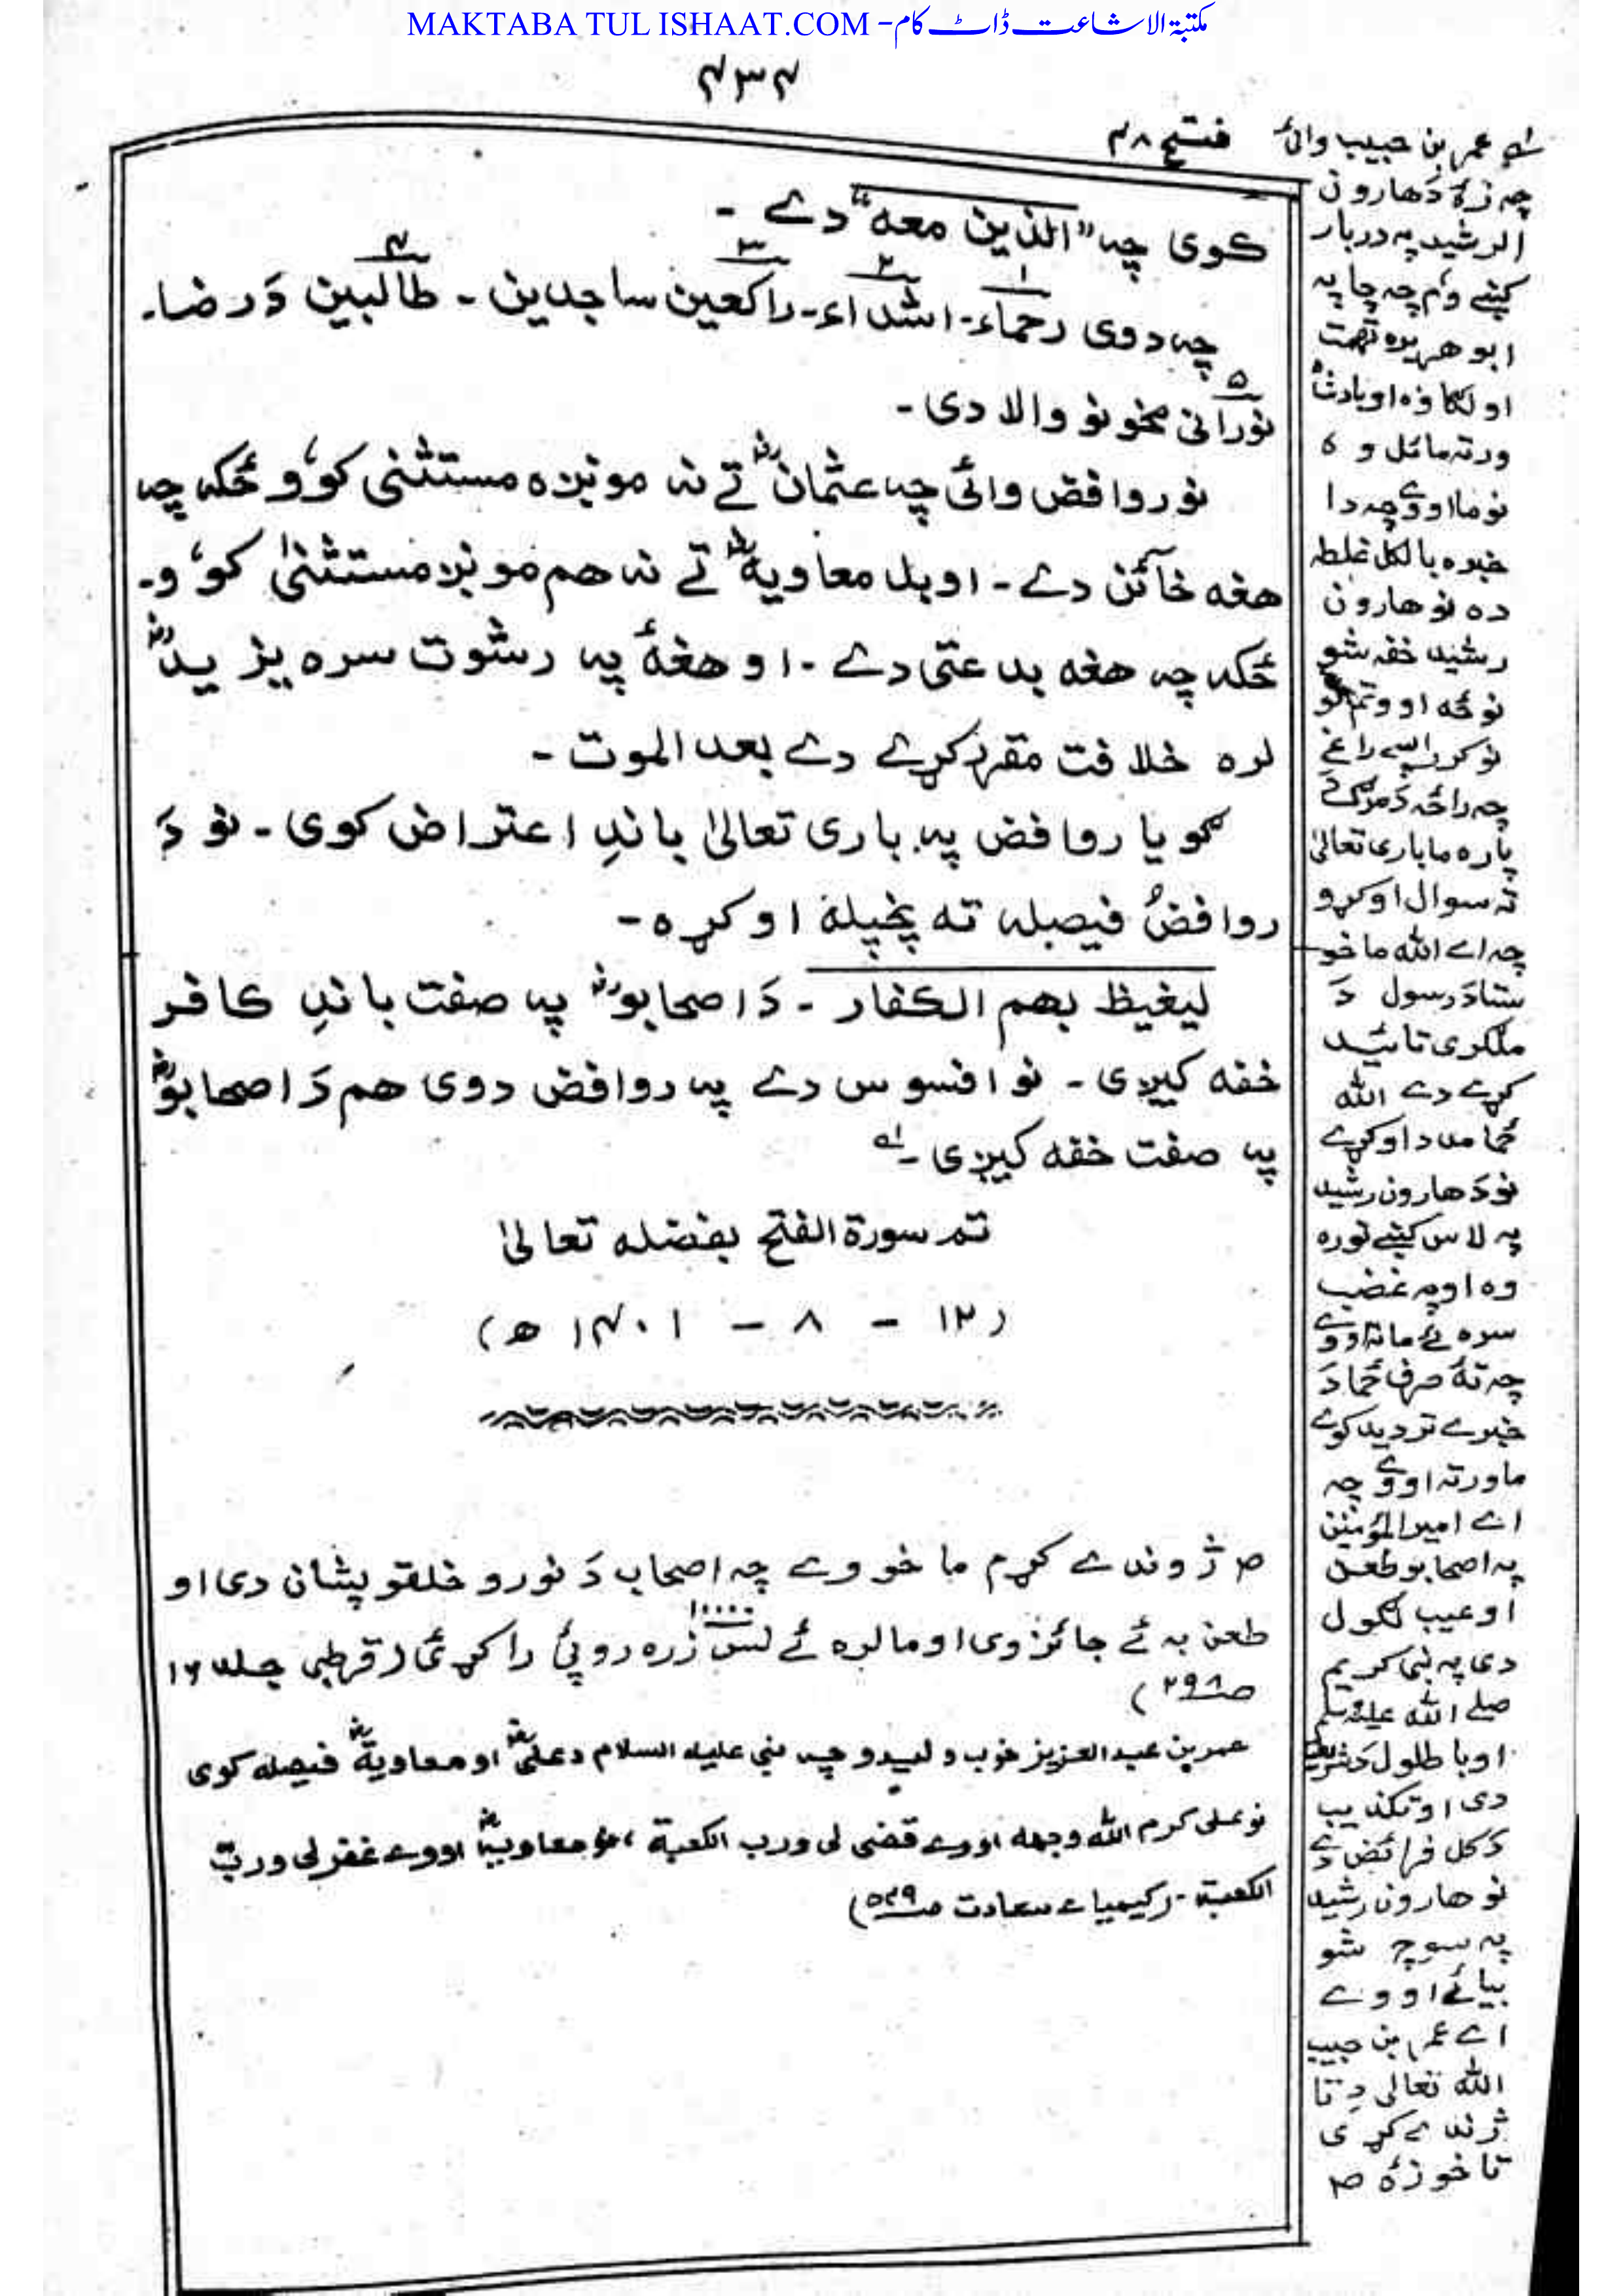 MAKTABA TUL ISHAAT.COM - مکتبۃ الاشاعت ڈاٹ کام
۴۳۴
فتح ۴۸
کوی چہ "الذین معہ" دے -
چہ دوی رحماء ۱ - اشداء ۲ - راکعین ساجدین ۳ - طالبین ۴ دَ رضا۔
۵
نورانی مخونو والا دی -
نو روافض وائی چہ عثمانؓ ئے نہ مونږہ مستثنی کوُو ځکہ چہ
هغه خآئن دے - او بل معاویهؓ ئے نہ هم مونږ مستثنیٰ کوُو -
ځکہ چہ هغه بدعتی دے - او هغۂ پہ رشوت سره یزیدؓ
لره خلافت مقرر کړے دے بعد الموت -
گویا روافض پہ باری تعالیٰ باندِ اعتراض کوی - نو دَ
روافضُ فیصلہ تہ پخپله اوکړه -
لیغیظ بهم الکفار - دَ اصحابوؓ پہ صفت باندِ کافر
خفه کیږی - نو افسوس دے پہ روافض دوی هم دَ اصحابوؓ
پہ صفت خفه کیږی - لہ
تمہ سورة الفتح بفضله تعالیٰ
(۱۲ - ۸ - ۱۴۰۱ ھ)
ص ژوندے کړم ما خو وے چہ اصحاب دَ نورو خلقو پشان دی او
طعن بہ ئے جائز وی او ما لره ئے لس ۱۰۰۰۰ زره روپئ راکړئ (قرطبی جلد ۱۶
صـ ۲۹۸)
عمر بن عبد العزیز خوب ولیدو چہ نبی علیه السلام د علیؓ او معاویةؓ فیصلہ کوی
نو علی کرم اللّٰه وجهه اووے قضی لی ورب الکعبة ، نو معاویةؓ اووے غفر لی ورب
الکعبة - (کیمیاء سعادت صـ ۵۴۹)
لہ عمر بن حبیب وائ
چہ زۂ دَ هارون
الرشید پہ دربار
کښے وُم چہ چا پہ
ابو هریره تهمت
اولګاوه او بادشاہ
ورتہ مائل وہ
نو ما اووے چہ دا
خبره بالکل غلطه
ده نو هارون
رشید خفه شو
نوکر پسے راغے
چہ راځہ دَ مرګ دَ
پاره ما باری تعالیٰ
تہ سوال اوکړو
چہ اے اللّٰه ما خو
ستا دَ رسول دَ
ملګری تائید
کړے دے اللّٰه
ځما مدد اوکړے
نو دَ هارون رشید
پہ لاس کښے توره
وه او پہ غضب
سره ئے ماتہ اووے
چہ تۂ صرف ځما دَ
خبرے تردید کوے
ما ورتہ اووے چہ
اے امیر المؤمنین
پہ اصحابو طعن
او عیب لګول
دی پہ نبی کریم
صلے اللّٰه علیه وسلم
او باطلول دَ شریعت
دی او تکذیب
دَ کل فرائض دے
نو هارون رشید
پہ سوچ شو
بیا ئے اووے
اے عمر بن حبیب
اللّٰه تعالی دِ تا
ژندے کړی
تا خو زۂ ص